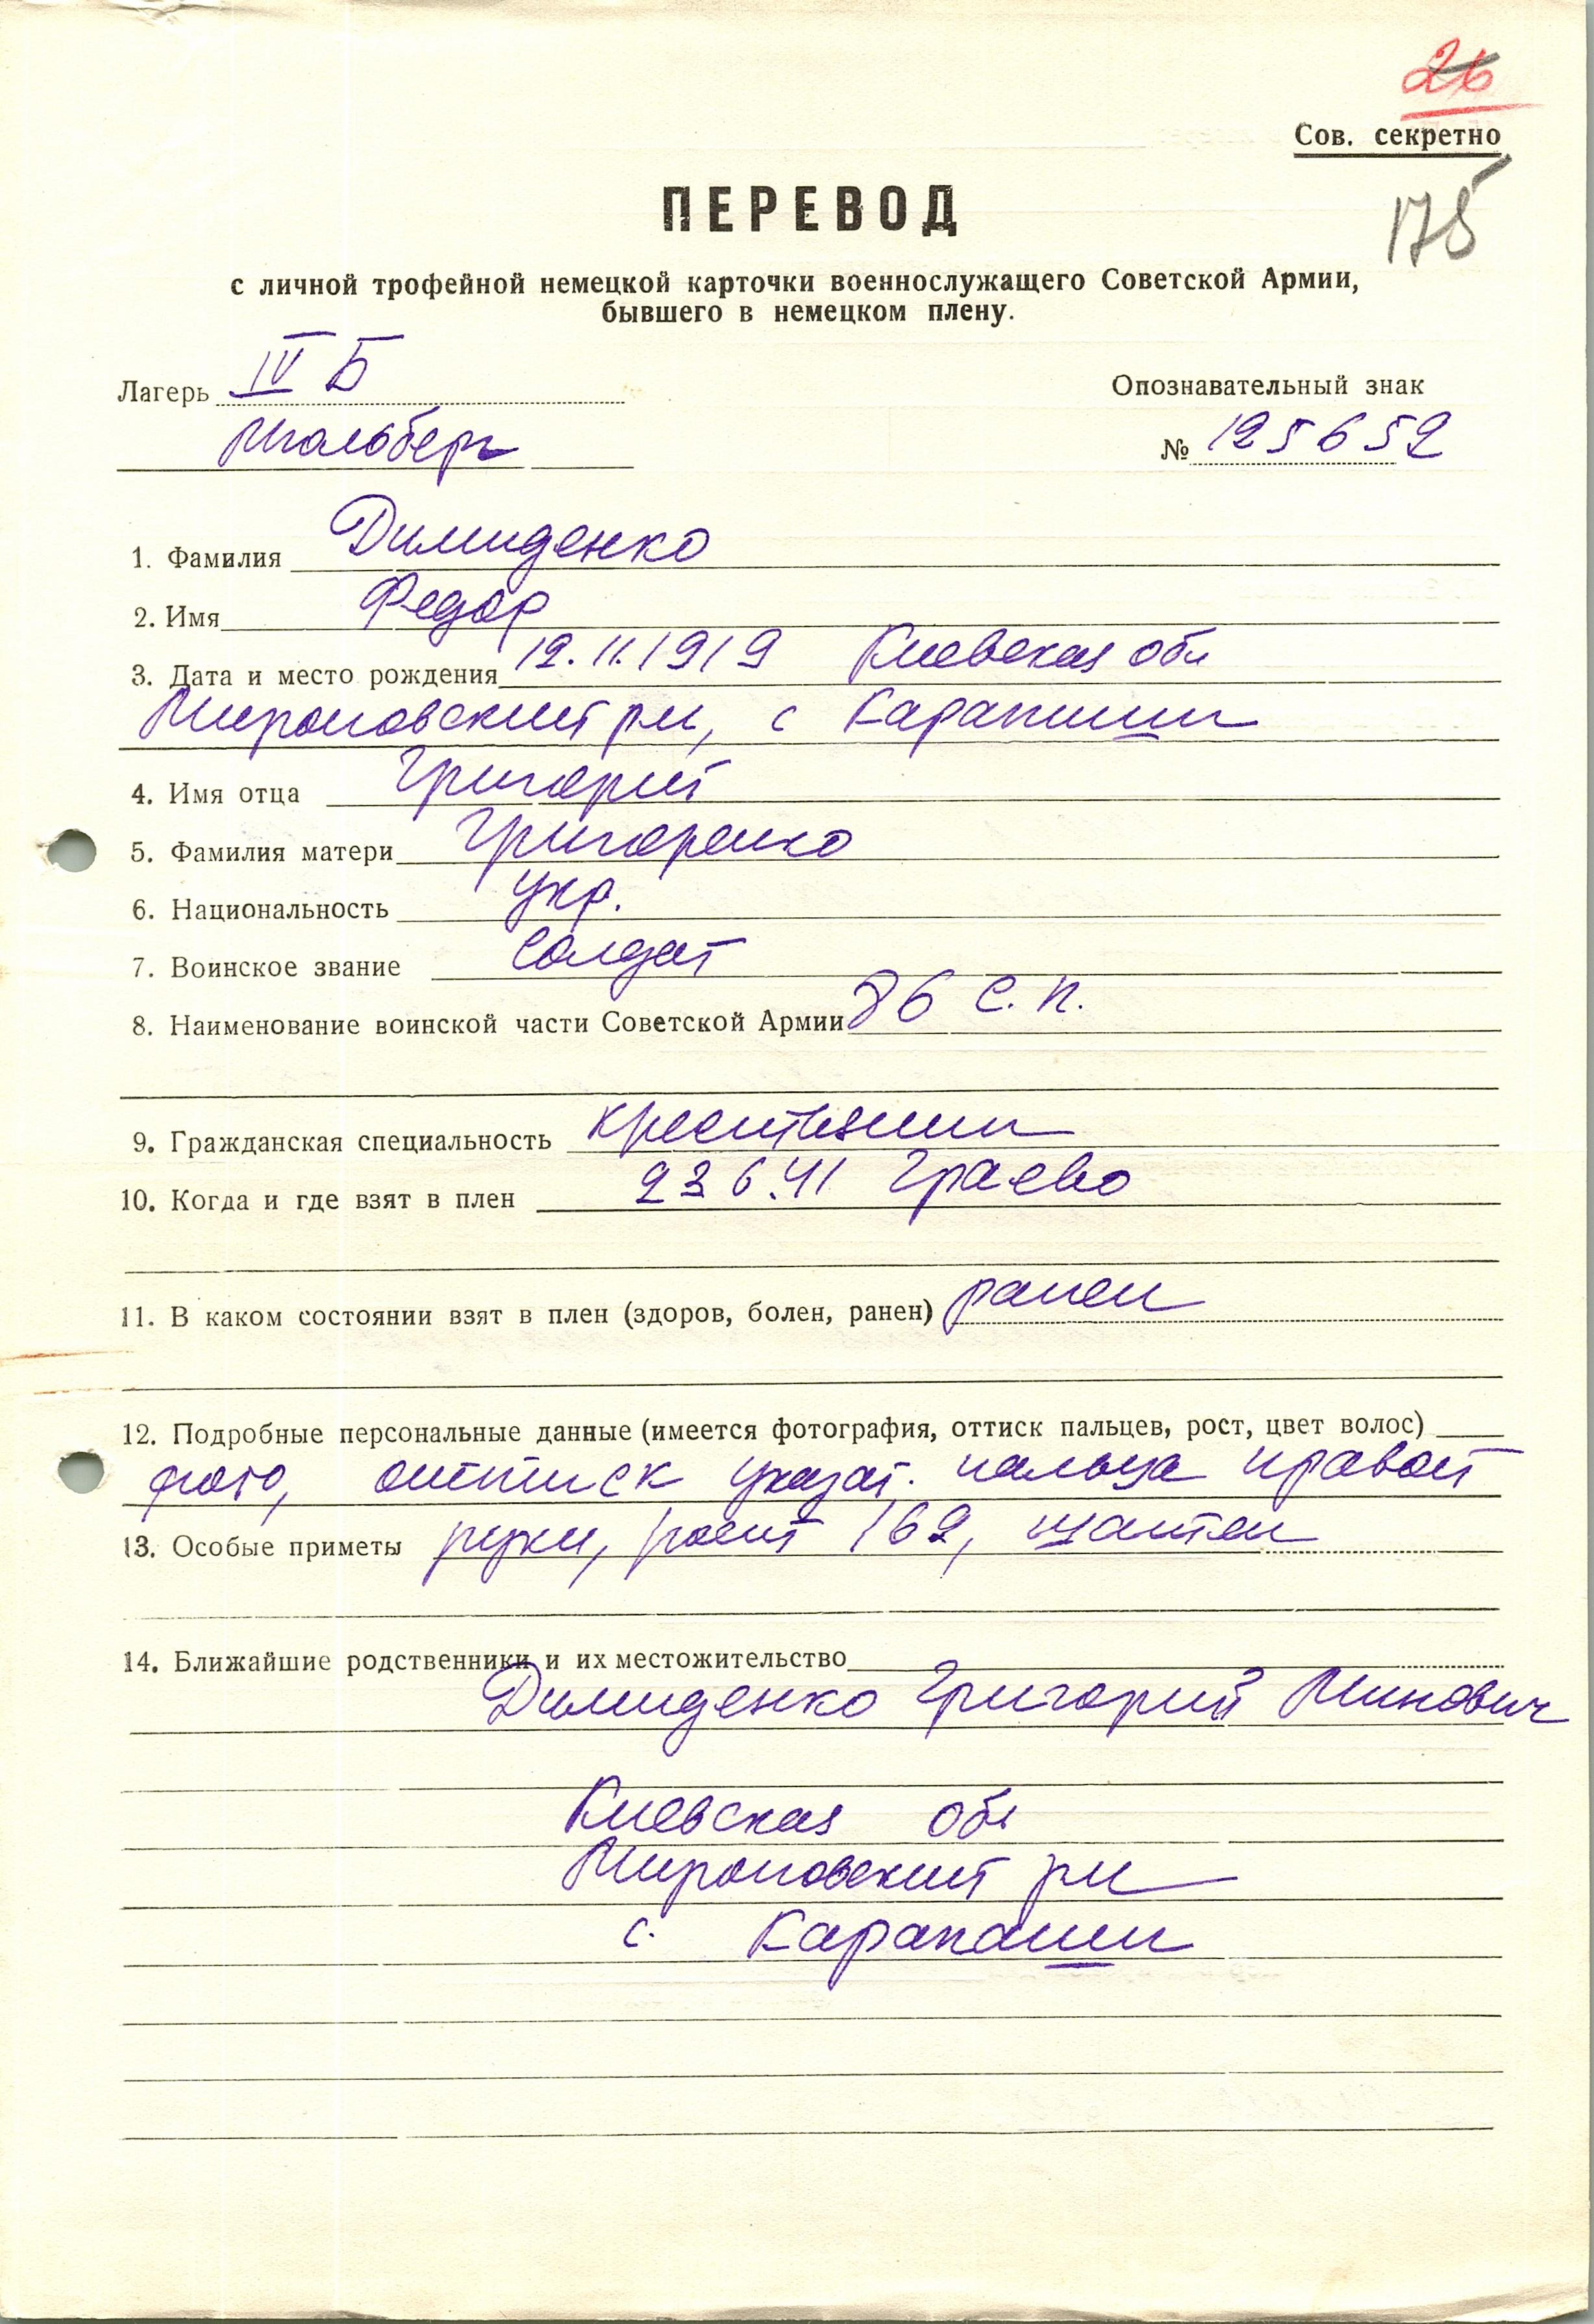 26
Сов. секретно
175
ПЕРЕВОД
с личной трофейной немецкой карточки военнослужащего Советской Армии,
бывшего в немецком плену.
Лагерь IV Б
Мюльберг
Опознавательный знак
№ 125652
1. Фамилия Димиденко
2. Имя Федор
3. Дата и место рождения 12.11.1919 Киевская обл
Мироновский рн, с Карапиши
4. Имя отца Григорий
5. Фамилия матери Григоренко
6. Национальность укр.
7. Воинское звание Солдат
8. Наименование воинской части Советской Армии 86 с. п.
9. Гражданская специальность крестьянин
10. Когда и где взят в плен 23 6.41 Граево
11. В каком состоянии взят в плен (здоров, болен, ранен) ранен
12. Подробные персональные данные (имеется фотография, оттиск пальцев, рост, цвет волос)
фото, оттиск указат. пальца правой
13. Особые приметы руки, рост 169, шатен
14. Ближайшие родственники и их местожительство
Димиденко Григорий Минович
Киевская обл
Мироновский рн
с. Карапаши